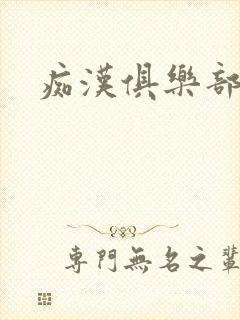 痴漢俱樂部
専門無名之輩